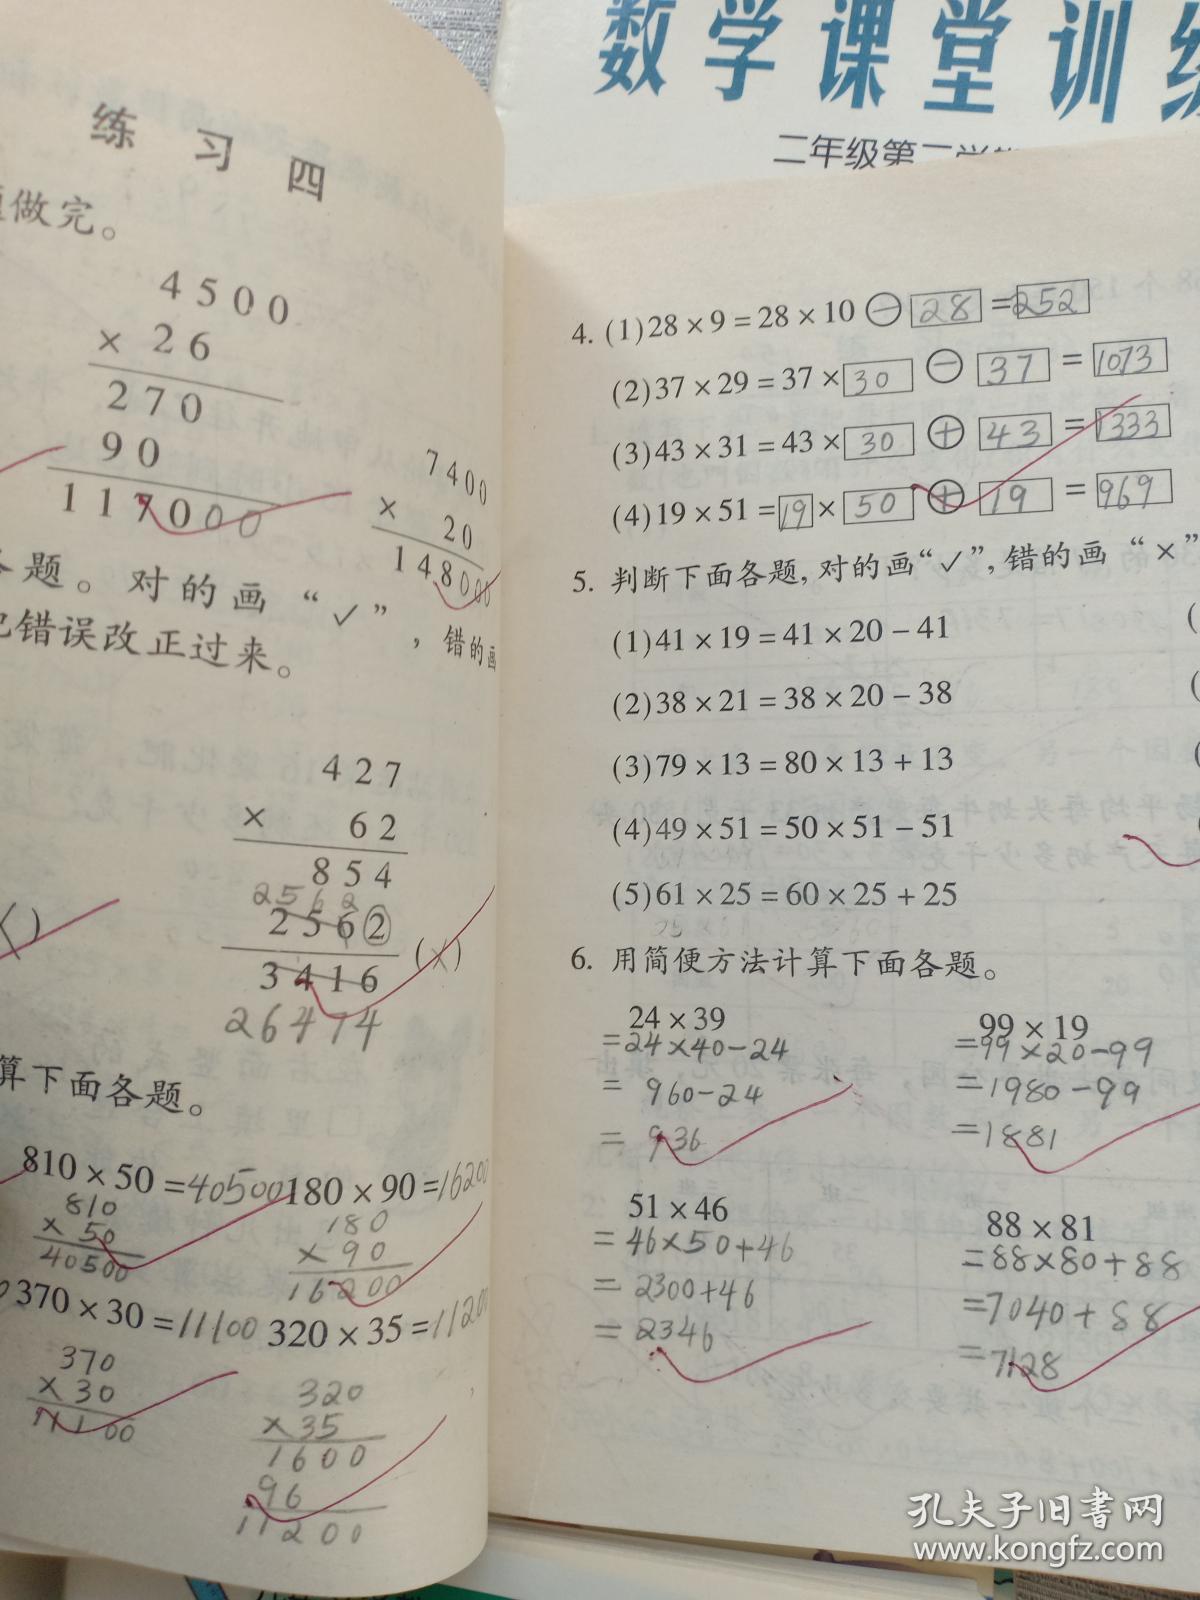 数学课堂训
二年级第二学期
练习四
做完。
4500
× 26
270
90
117000
7400
× 20
148000
各题。对的画“✓”，错的画
把错误改正过来。
427
× 62
854
2562
2562
3416
(×)
26474
算下面各题。
810×50=40500
810
×50
40500
180×90=16200
180
×90
16200
370×30=11100
370
×30
11100
320×35=11200
320
×35
1600
96
11200
4. (1)28×9=28×10⊖28=252
(2)37×29=37×30⊖37=1073
(3)43×31=43×30⊕43=1333
(4)19×51=19×50⊕19=969
5. 判断下面各题,对的画“✓”,错的画“×”
(1)41×19=41×20-41
(2)38×21=38×20-38
(3)79×13=80×13+13
(4)49×51=50×51-51
(5)61×25=60×25+25
6. 用简便方法计算下面各题。
24×39
=24×40-24
=960-24
=936
99×19
=99×20-99
=1980-99
=1881
51×46
=46×50+46
=2300+46
=2346
88×81
=88×80+88
=7040+88
=7128
孔夫子旧书网
www.kongfz.com